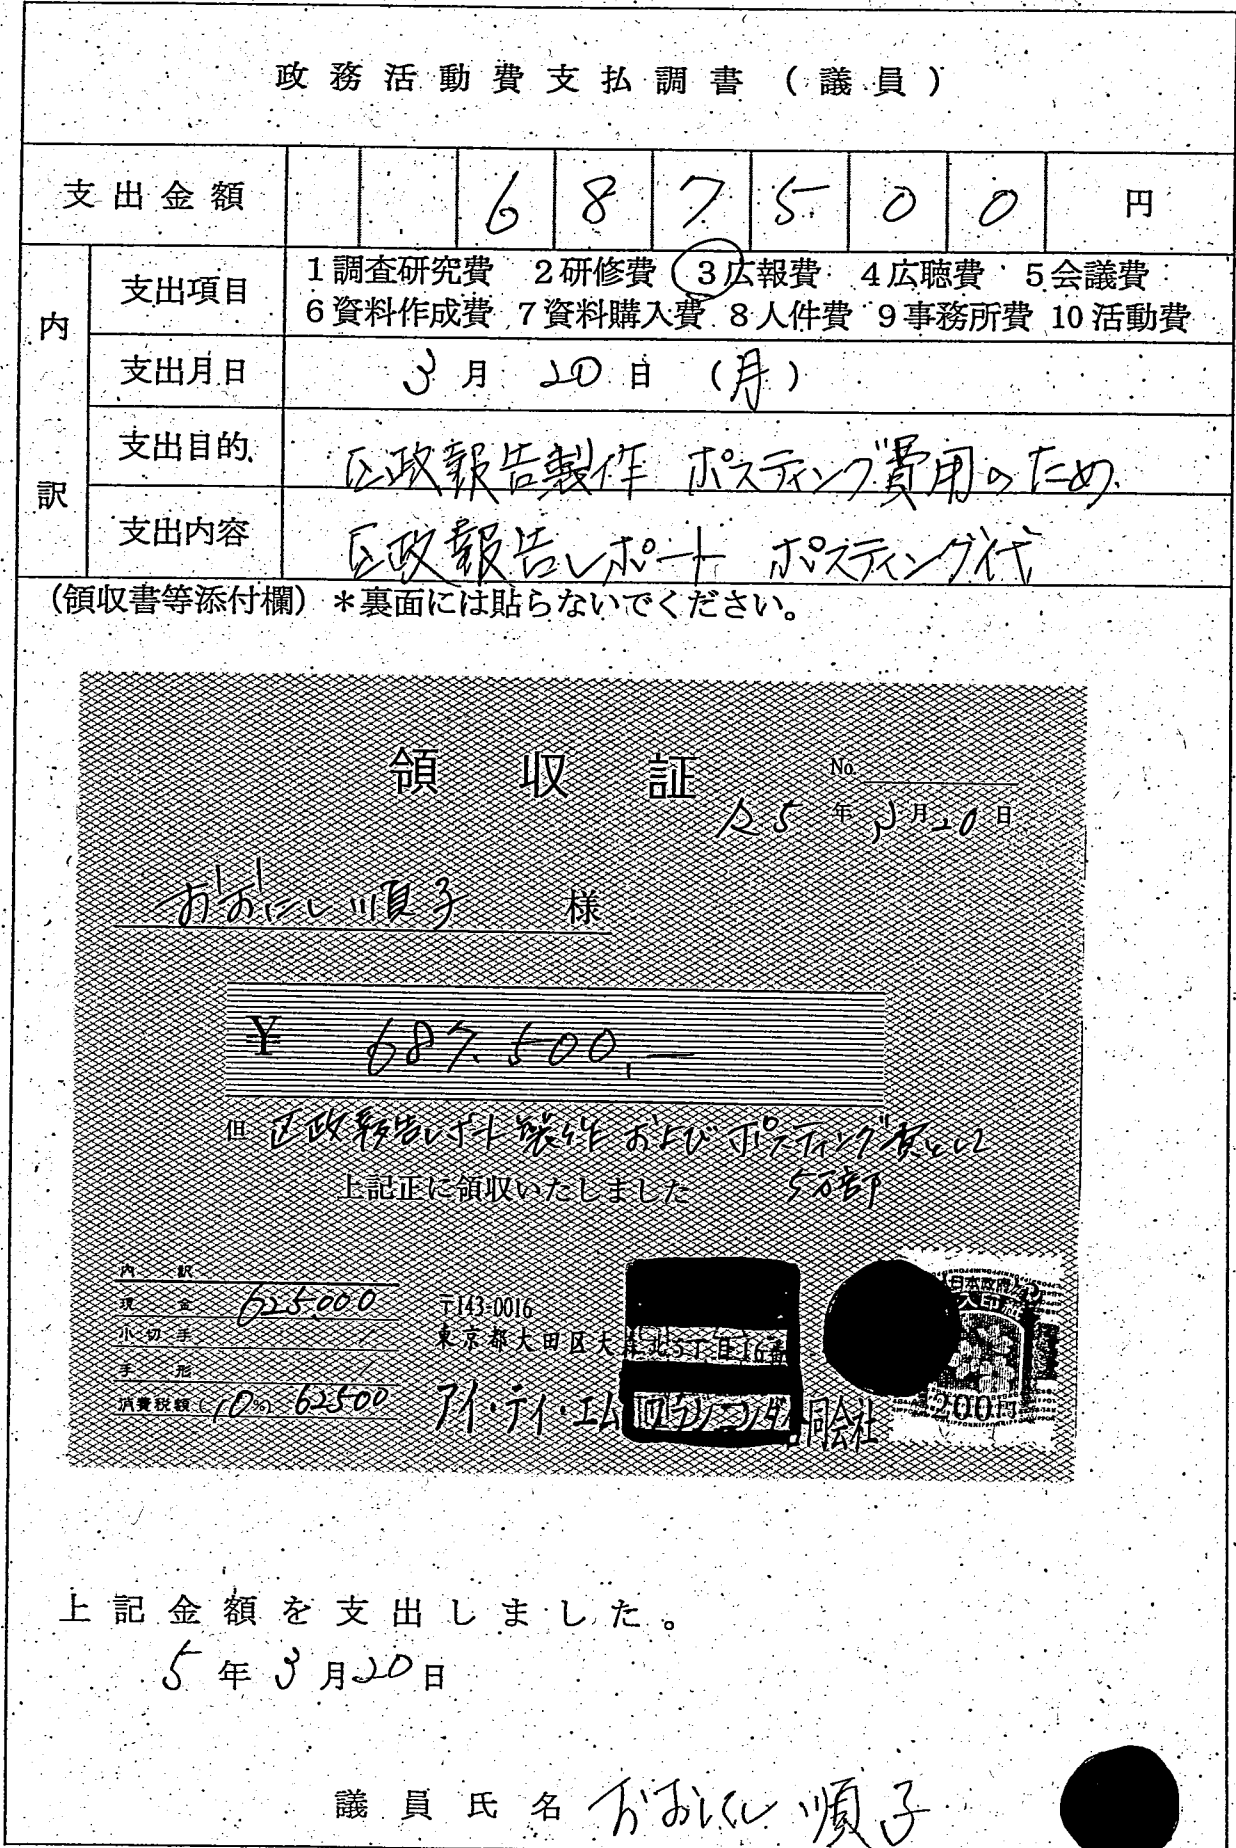 政務活動費支払調書（議員）
支出金額 6 8 7 5 0 0 円
内訳
支出項目 1調査研究費 2研修費 3広報費 4広聴費 5会議費
6資料作成費 7資料購入費 8人件費 9事務所費 10活動費
支出月日 3月20日（月）
支出目的 区政報告製作 ポスティング費用のため
支出内容 区政報告レポート ポスティング代
（領収書等添付欄）＊裏面には貼らないでください。
領収証 No.
R5年3月20日
おおにし順子 様
¥ 687,500.—
但 区政報告レポート製作およびポスティング費として
上記正に領収いたしました 5万部
内訳
現金 625.000
小切手
手形
消費税額(10%) 62500
〒143-0016
東京都大田区大森北5丁目16番
アイ・ティ・エム 合同会社
日本政府
収入印紙
200円
上記金額を支出しました。
5年3月20日
議員氏名 おおにし 順子